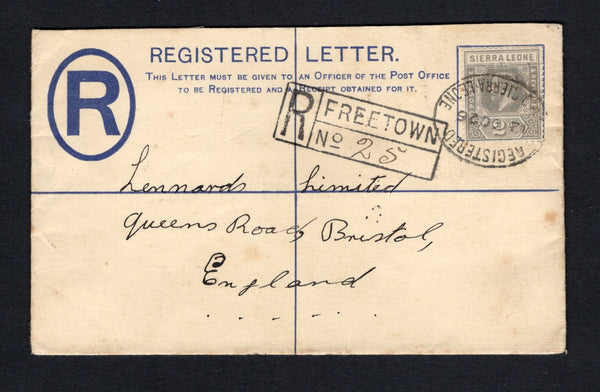 REGISTERED LETTER.
THIS LETTER MUST BE GIVEN TO AN OFFICER OF THE POST OFFICE
TO BE REGISTERED AND A RECEIPT OBTAINED FOR IT.
R
SIERRA LEONE
2
REGISTERED
SIERRA LEONE
R FREETOWN
No 25
Lennards Limited
Queens Road, Bristol,
England
. . . . . .